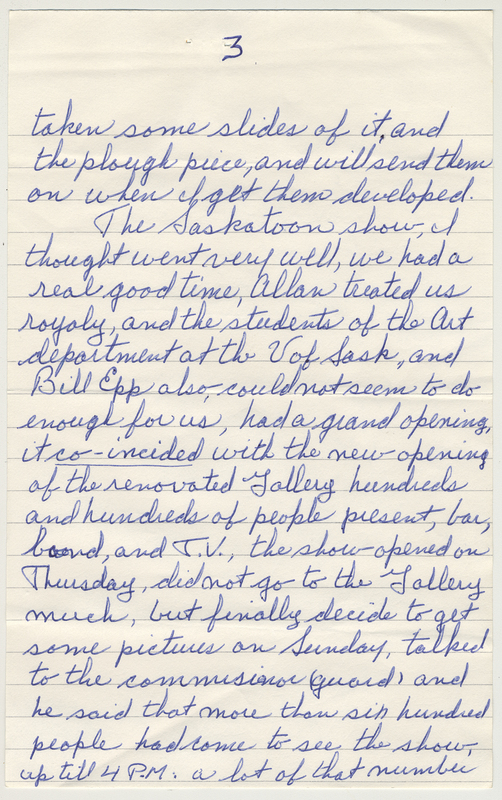 3
taken some slides of it, and
the plough piece, and will send them
on when I get them developed.
The Saskatoon show, I
thought went very well, we had a
real good time, Allan treated us
royaly, and the students of the Art
department at the U of Sask., and
Bill Epp also, could not seem to do
enough for us, had a grand opening,
it co-incided with the new opening
of the renovated Gallery hundreds
and hundreds of people present, bar,
band, and T.V., the show opened on
Thursday, did not go to the Gallery
much, but finally decide to get
some pictures on Sunday, talked
to the commisinor (guard) and
he said that more than six hundred
people had come to see the show,
up till 4 P.M. a lot of that number